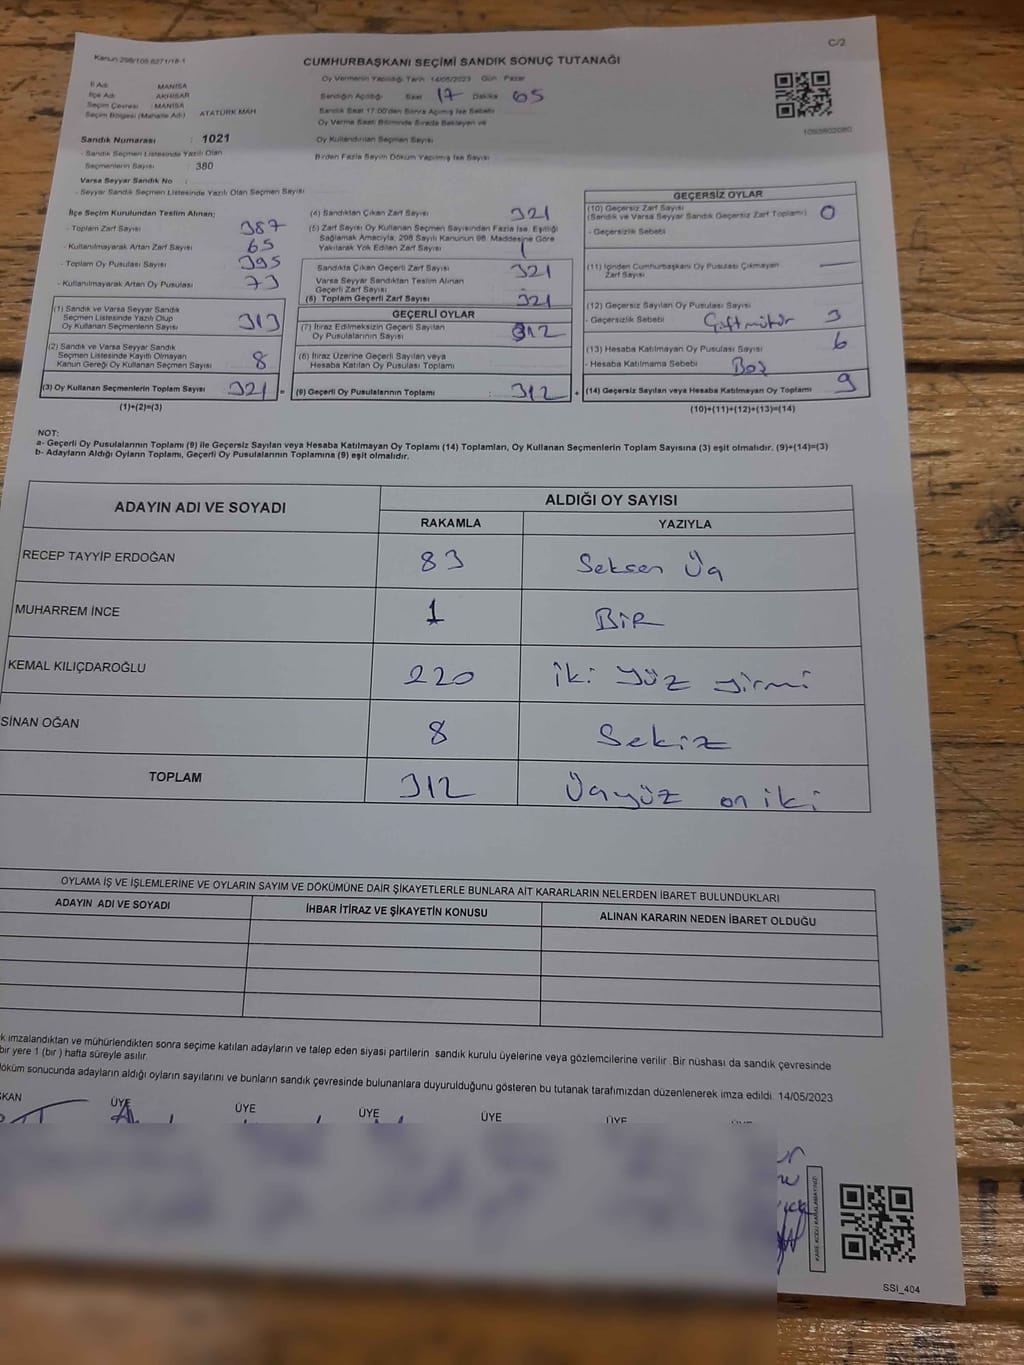 C/2
Kanun 298/105 6271/18-1
CUMHURBAŞKANI SEÇİMİ SANDIK SONUÇ TUTANAĞI
Oy Vermenin Yapıldığı Tarih 14/05/2023 Gün Pazar
İl Adı MANİSA
İlçe Adı AKHİSAR
Seçim Çevresi : MANİSA
Seçim Bölgesi (Mahalle Adı) ATATÜRK MAH
Sandık Numarası : 1021
- Sandık Seçmen Listesinde Yazılı Olan
Seçmenlerin Sayısı : 380
Varsa Seyyar Sandık No :
- Seyyar Sandık Seçmen Listesinde Yazılı Olan Seçmen Sayısı
Sandığın Açıldığı Saat 17 Dakika 05
Sandık Saat 17:00'den Sonra Açılmış İse Sebebi
Oy Verme Saati Bitiminde Sırada Bekleyen ve
Oy Kullandırılan Seçmen Sayısı
Birden Fazla Sayım Döküm Yapılmış İse Sayısı
1093802080
İlçe Seçim Kurulundan Teslim Alınan;
- Toplam Zarf Sayısı 387
- Kullanılmayarak Artan Zarf Sayısı 65
- Toplam Oy Pusulası Sayısı 395
- Kullanılmayarak Artan Oy Pusulası 73
(1) Sandık ve Varsa Seyyar Sandık
Seçmen Listesinde Yazılı Olup
Oy Kullanan Seçmenlerin Sayısı 313
(2) Sandık ve Varsa Seyyar Sandık
Seçmen Listesinde Kayıtlı Olmayan
Kanun Gereği Oy Kullanan Seçmen Sayısı 8
(3) Oy Kullanan Seçmenlerin Toplam Sayısı 321 =
(1)+(2)=(3)
(4) Sandıktan Çıkan Zarf Sayısı 321
(5) Zarf Sayısı Oy Kullanan Seçmen Sayısından Fazla İse, Eşitliği
Sağlamak Amacıyla, 298 Sayılı Kanunun 98. Maddesine Göre
Yakılarak Yok Edilen Zarf Sayısı 1
Sandıkta Çıkan Geçerli Zarf Sayısı 321
Varsa Seyyar Sandıktan Teslim Alınan
Geçerli Zarf Sayısı
(6) Toplam Geçerli Zarf Sayısı 321
GEÇERLİ OYLAR
(7) İtiraz Edilmeksizin Geçerli Sayılan
Oy Pusulalarının Sayısı 312
(8) İtiraz Üzerine Geçerli Sayılan veya
Hesaba Katılan Oy Pusulaları Toplamı
(9) Geçerli Oy Pusulalarının Toplamı : 312 +
GEÇERSİZ OYLAR
(10) Geçersiz Zarf Sayısı
(Sandık ve Varsa Seyyar Sandık Geçersiz Zarf Toplamı) 0
- Geçersizlik Sebebi
(11) İçinden Cumhurbaşkanı Oy Pusulası Çıkmayan
Zarf Sayısı —
(12) Geçersiz Sayılan Oy Pusulası Sayısı
- Geçersizlik Sebebi Çift mühür 3
(13) Hesaba Katılmayan Oy Pusulası Sayısı 6
- Hesaba Katılmama Sebebi Boş
(14) Geçersiz Sayılan veya Hesaba Katılmayan Oy Toplamı 9
(10)+(11)+(12)+(13)=(14)
NOT:
a- Geçerli Oy Pusulalarının Toplamı (9) ile Geçersiz Sayılan veya Hesaba Katılmayan Oy Toplamı (14) Toplamları, Oy Kullanan Seçmenlerin Toplam Sayısına (3) eşit olmalıdır. (9)+(14)=(3)
b- Adayların Aldığı Oyların Toplamı, Geçerli Oy Pusulalarının Toplamına (9) eşit olmalıdır.
ADAYIN ADI VE SOYADI
ALDIĞI OY SAYISI
RAKAMLA YAZIYLA
RECEP TAYYİP ERDOĞAN 83 Seksen Üç
MUHARREM İNCE 1 BİR
KEMAL KILIÇDAROĞLU 220 iki yüz yirmi
SİNAN OĞAN 8 Sekiz
TOPLAM 312 Üçyüz on iki
OYLAMA İŞ VE İŞLEMLERİNE VE OYLARIN SAYIM VE DÖKÜMÜNE DAİR ŞİKAYETLERLE BUNLARA AİT KARARLARIN NELERDEN İBARET BULUNDUKLARI
ADAYIN ADI VE SOYADI İHBAR İTİRAZ VE ŞİKAYETİN KONUSU ALINAN KARARIN NEDEN İBARET OLDUĞU
k imzalandıktan ve mühürlendikten sonra seçime katılan adayların ve talep eden siyasi partilerin sandık kurulu üyelerine veya gözlemcilerine verilir. Bir nüshası da sandık çevresinde
bir yere 1 (bir ) hafta süreyle asılır.
döküm sonucunda adayların aldığı oyların sayılarını ve bunların sandık çevresinde bulunanlara duyurulduğunu gösteren bu tutanak tarafımızdan düzenlenerek imza edildi. 14/05/2023
ŞKAN ÜYE ÜYE ÜYE ÜYE ÜYE
SSI_404